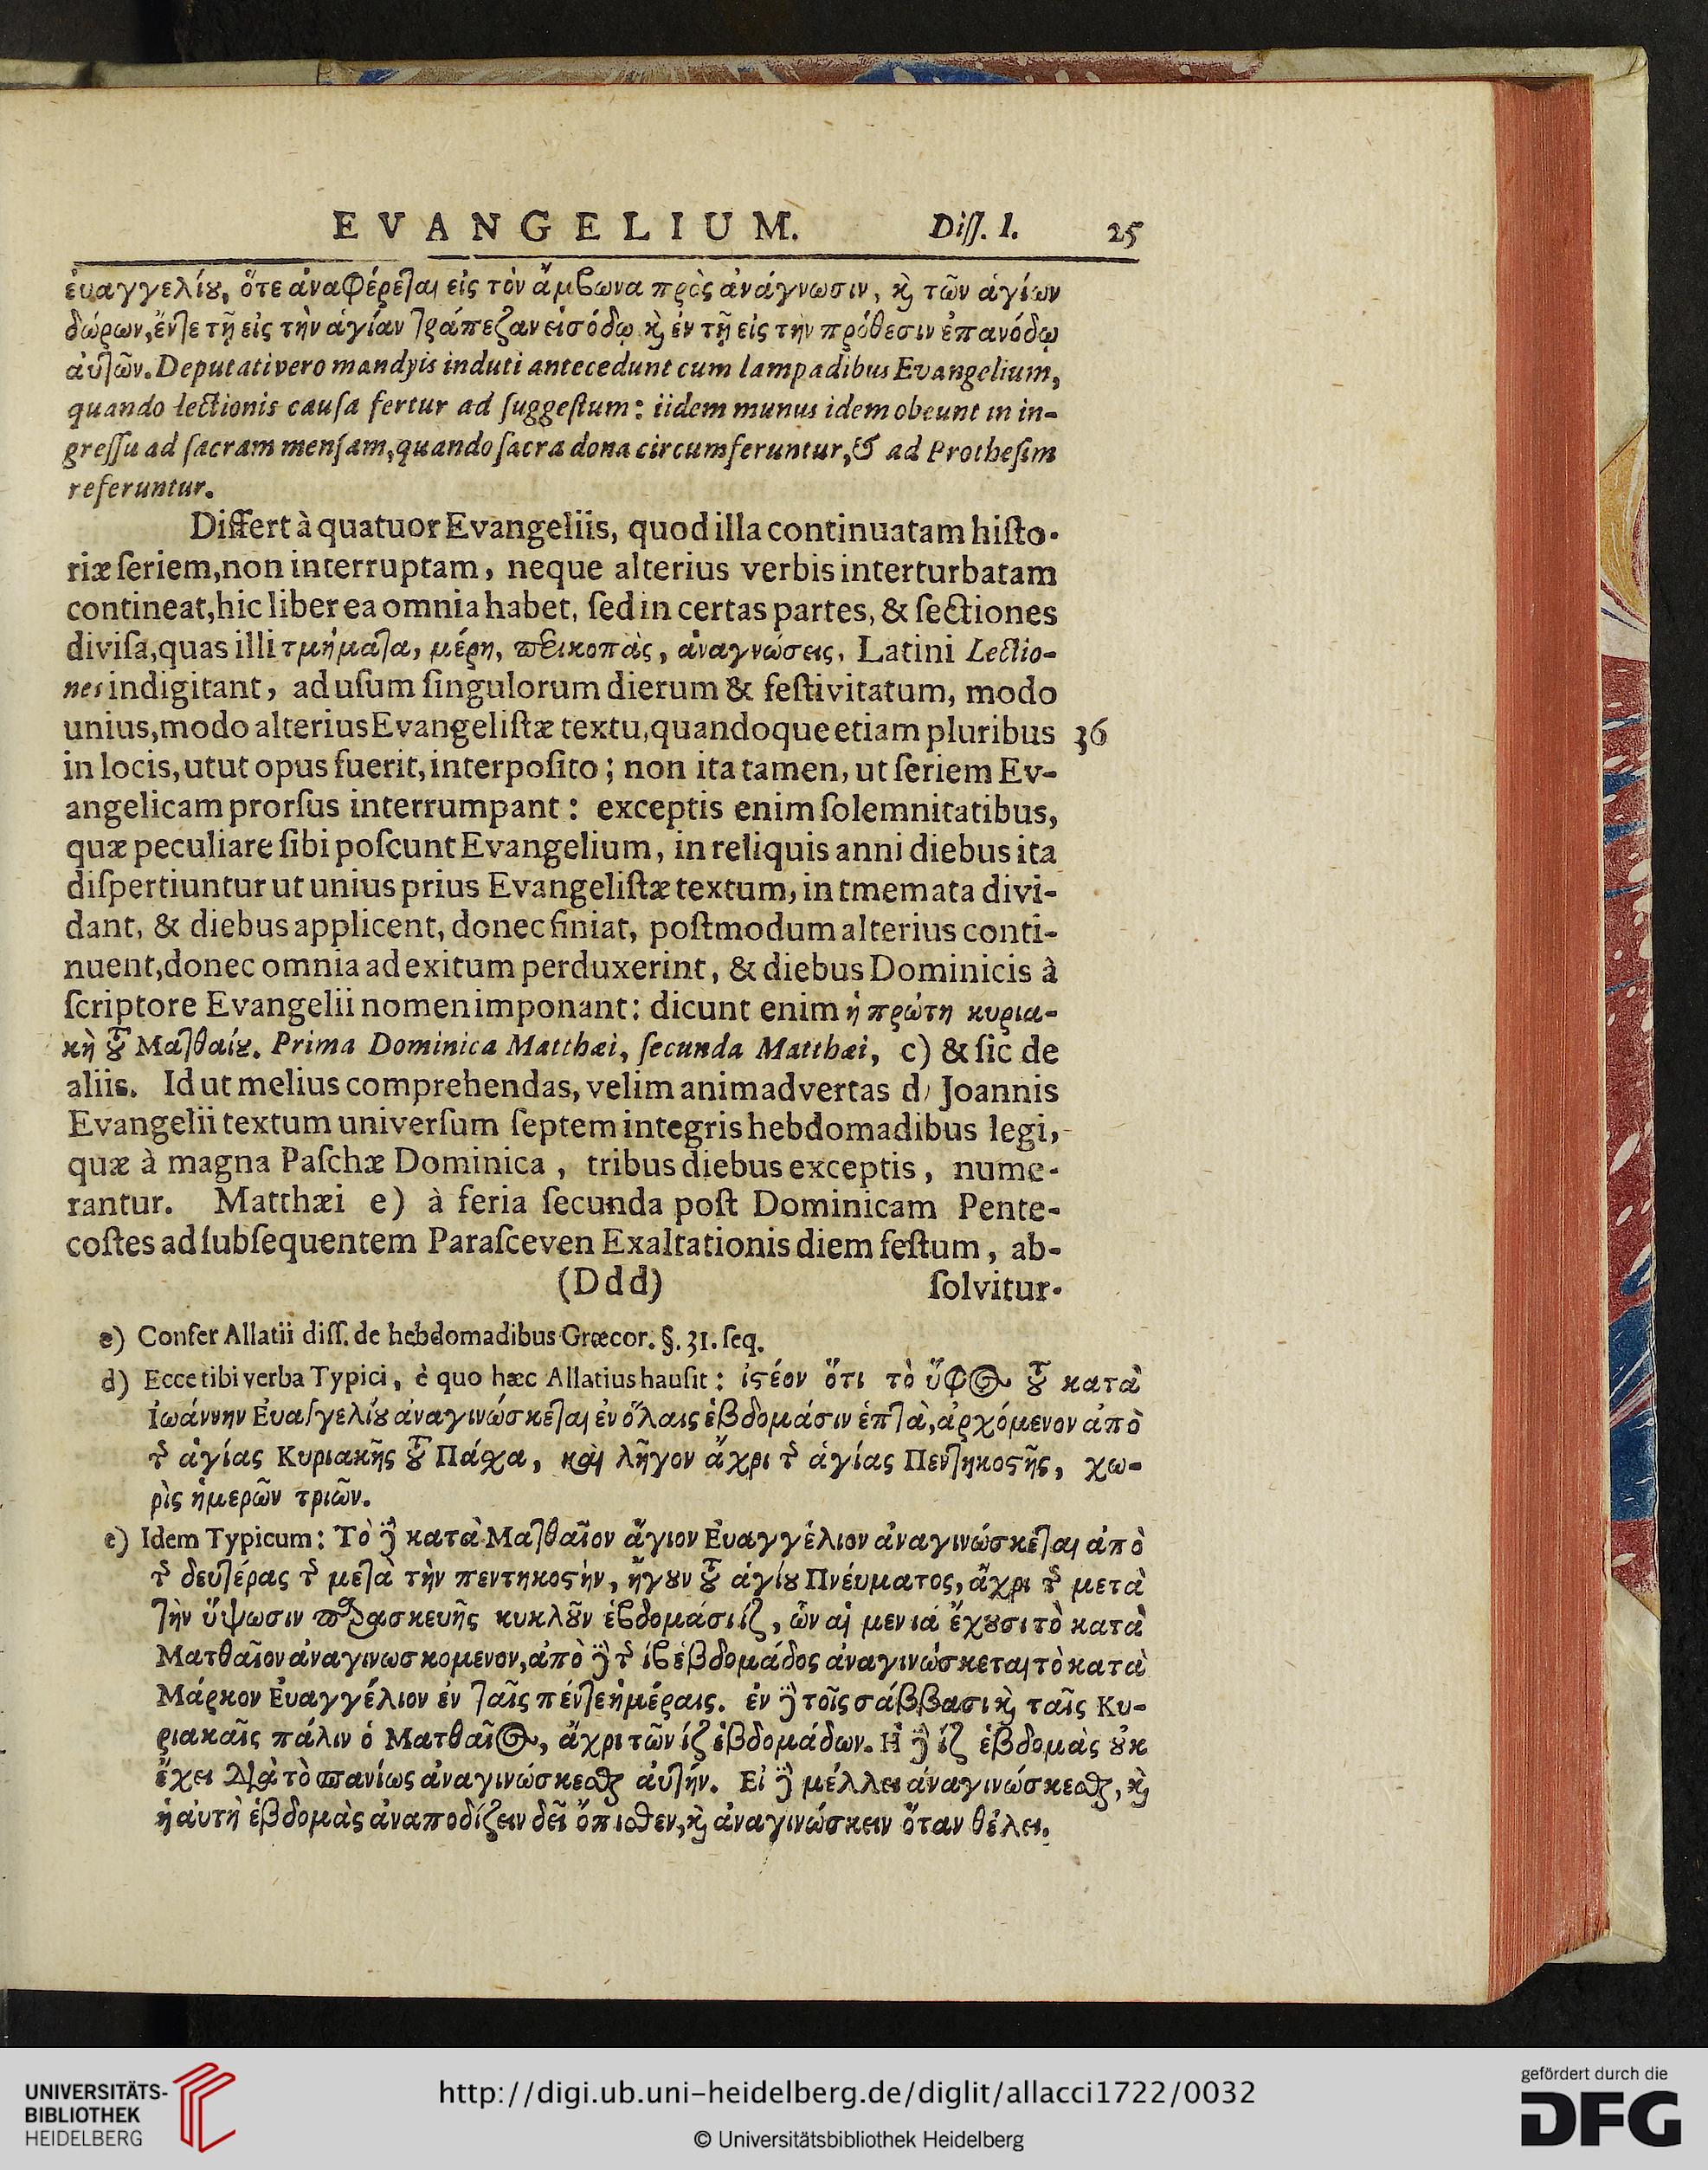 EVANGELIUM. Diſſ. I. 25
ἐυαγγελίȣ, ὅτε ἀναφέρεται εἰς τὸν ἄμβωνα πρὸς ἀνάγνωσιν, ϗ τῶν ἁγίων
δώρων, ἔντε τῇ εἰς τὴν ἁγίαν τράπεζαν εἰσόδῳ ϗ ἐν τῇ εἰς τὴν πρόθεσιν ἐπανόδῳ
ἀυτῶν. Deputati vero mandyis induti antecedunt cum lampadibus Evangelium,
quando lectionis cauſa fertur ad ſuggeſtum: iidem munus idem obeunt in in-
greſſu ad ſacram menſam, quando ſacra dona circumferuntur, & ad Protheſim
referuntur.
Differt à quatuor Evangeliis, quod illa continuatam hiſto-
riæ ſeriem, non interruptam, neque alterius verbis interturbatam
contineat, hic liber ea omnia habet, ſed in certas partes, & ſectiones
diviſa, quas illi τμήματα, μέρη, περικοπὰς, ἀναγνώσεις, Latini Lectio-
nes indigitant, ad uſum ſingulorum dierum & feſtivitatum, modo
unius, modo alterius Evangeliſtæ textu, quandoque etiam pluribus 36
in locis, utut opus fuerit, interpoſito; non ita tamen, ut ſeriem Ev-
angelicam prorſus interrumpant: exceptis enim ſolemnitatibus,
quæ peculiare ſibi poſcunt Evangelium, in reliquis anni diebus ita
diſpertiuntur ut unius prius Evangeliſtæ textum, in tmemata divi-
dant, & diebus applicent, donec finiat, poſtmodum alterius conti-
nuent, donec omnia ad exitum perduxerint, & diebus Dominicis à
ſcriptore Evangelii nomen imponant: dicunt enim ἡ πρώτη κυρια-
κὴ τȣ͂ Ματθαίȣ. Prima Dominica Matthæi, ſecunda Matthæi, c) & ſic de
aliis. Id ut melius comprehendas, velim animadvertas d) Joannis
Evangelii textum univerſum ſeptem integris hebdomadibus legi,
quæ à magna Paſchæ Dominica, tribus diebus exceptis, nume-
rantur. Matthæi e) à feria ſecunda poſt Dominicam Pente-
coſtes ad ſubſequentem Paraſceven Exaltationis diem feſtum, ab-
(Ddd) ſolvitur-
e) Confer Allatii diſſ. de hebdomadibus Græcor. §. 31. ſeq.
d) Ecce tibi verba Typici, è quo hæc Allatius hauſit: ἰϛέον ὅτι τὸ ὕφος τȣ͂ κατὰ
Ἰωάννην Ἐυαγγελίȣ ἀναγινώσκεται ἐν ὅλαις ἑβδομάσιν ἑπτὰ, ἀρχόμενον ἀπὸ
τῆς ἁγίας Κυριακῆς τȣ͂ Πάσχα, καὶ λῆγον ἄχρι τῆς ἁγίας Πεντηκοϛῆς, χω-
ρὶς ἡμερῶν τριῶν.
e) Idem Typicum: Τὸ δὲ κατὰ Ματθαῖον ἅγιον Ἐυαγγέλιον ἀναγινώσκεται ἀπὸ
τῆς δευτέρας τῆς μετὰ τὴν πεντηκοϛὴν, ἤγȣν τȣ͂ ἁγίȣ Πνέυματος, ἄχρι τῆς μετὰ
τὴν ὕψωσιν παρασκευῆς κυκλȣ͂ν ἑβδομάσι ιζ, ὧν αἱ μεν ιά ἔχȣσι τὸ κατὰ
Ματθαῖον ἀναγινωσκομενον, ἀπὸ δὲ τῆς ιβ ἑβδομάδος ἀναγινώσκεται τὸ κατὰ
Μάρκον Ἐυαγγέλιον ἐν ταῖς πέντε ἡμέραις. ἐν δὲ τοῖς σάββασι ϗ ταῖς Κυ-
ριακαῖς πάλιν ὁ Ματθαῖος, ἄχρι τῶν ιζ ἑβδομάδων. Ἡ δὲ ιζ ἑβδομὰς ȣκ
ἔχει διὰ τὸ σπανίως ἀναγινώσκεσθαι ἀυτήν. Εἰ δὲ μέλλει ἀναγινώσκεσθαι, ϗ
ἡ ἀυτὴ ἑβδομὰς ἀναποδίζειν δεῖ ὄπισθεν, ϗ ἀναγινώσκειν ὅταν θέλει.
UNIVERSITÄTS-
BIBLIOTHEK
HEIDELBERG
http://digi.ub.uni-heidelberg.de/diglit/allacci1722/0032
© Universitätsbibliothek Heidelberg
gefördert durch die
DFG